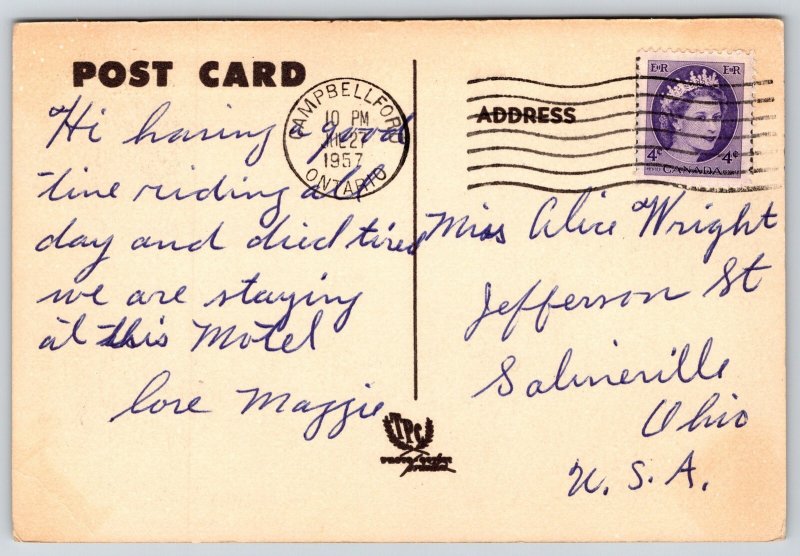 POST CARD
CAMPBELLFORD
10 PM
27
1957
ONTARIO
ADDRESS
E R
E R
4¢
4¢
CANADA
Hi having a good
time riding all
day and died tired
we are staying
at this Motel
love Maggie
Miss Alice Wright
Jefferson St
Salineville
Ohio
U. S. A.
TPC